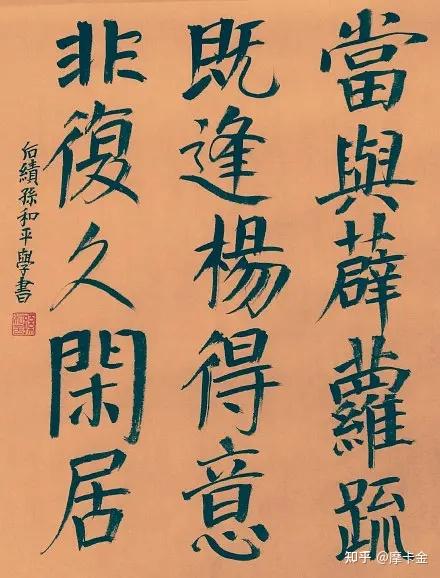 當與薜蘿疏
既逢楊得意
非復久閑居
后績孫和平學書
知乎 @摩卡金